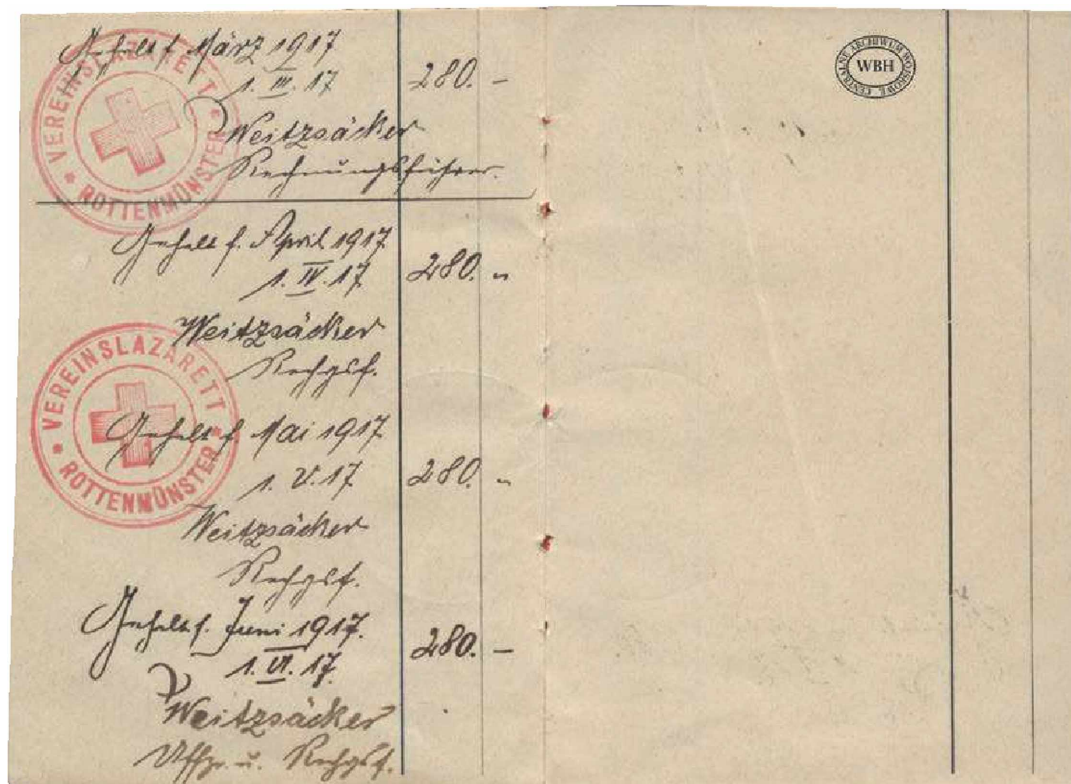 Gehalt f. März 1917
1. III. 17 280. –
Weitzsäcker
Rechnungsführer.
VEREINSLAZARETT
ROTTENMÜNSTER
Gehalt f. April 1917
1. IV. 17 280. „
Weitzsäcker
Rechgsf.
VEREINSLAZARETT
ROTTENMÜNSTER
Gehalt f. Mai 1917
1. V. 17 280. „
Weitzsäcker
Rechgsf.
Gehalt f. Juni 1917.
1. VI. 17. 280. –
Weitzsäcker
Uffz. u. Rechgsf.
CENTRALNE ARCHIWUM WOJSKOWE
WBH